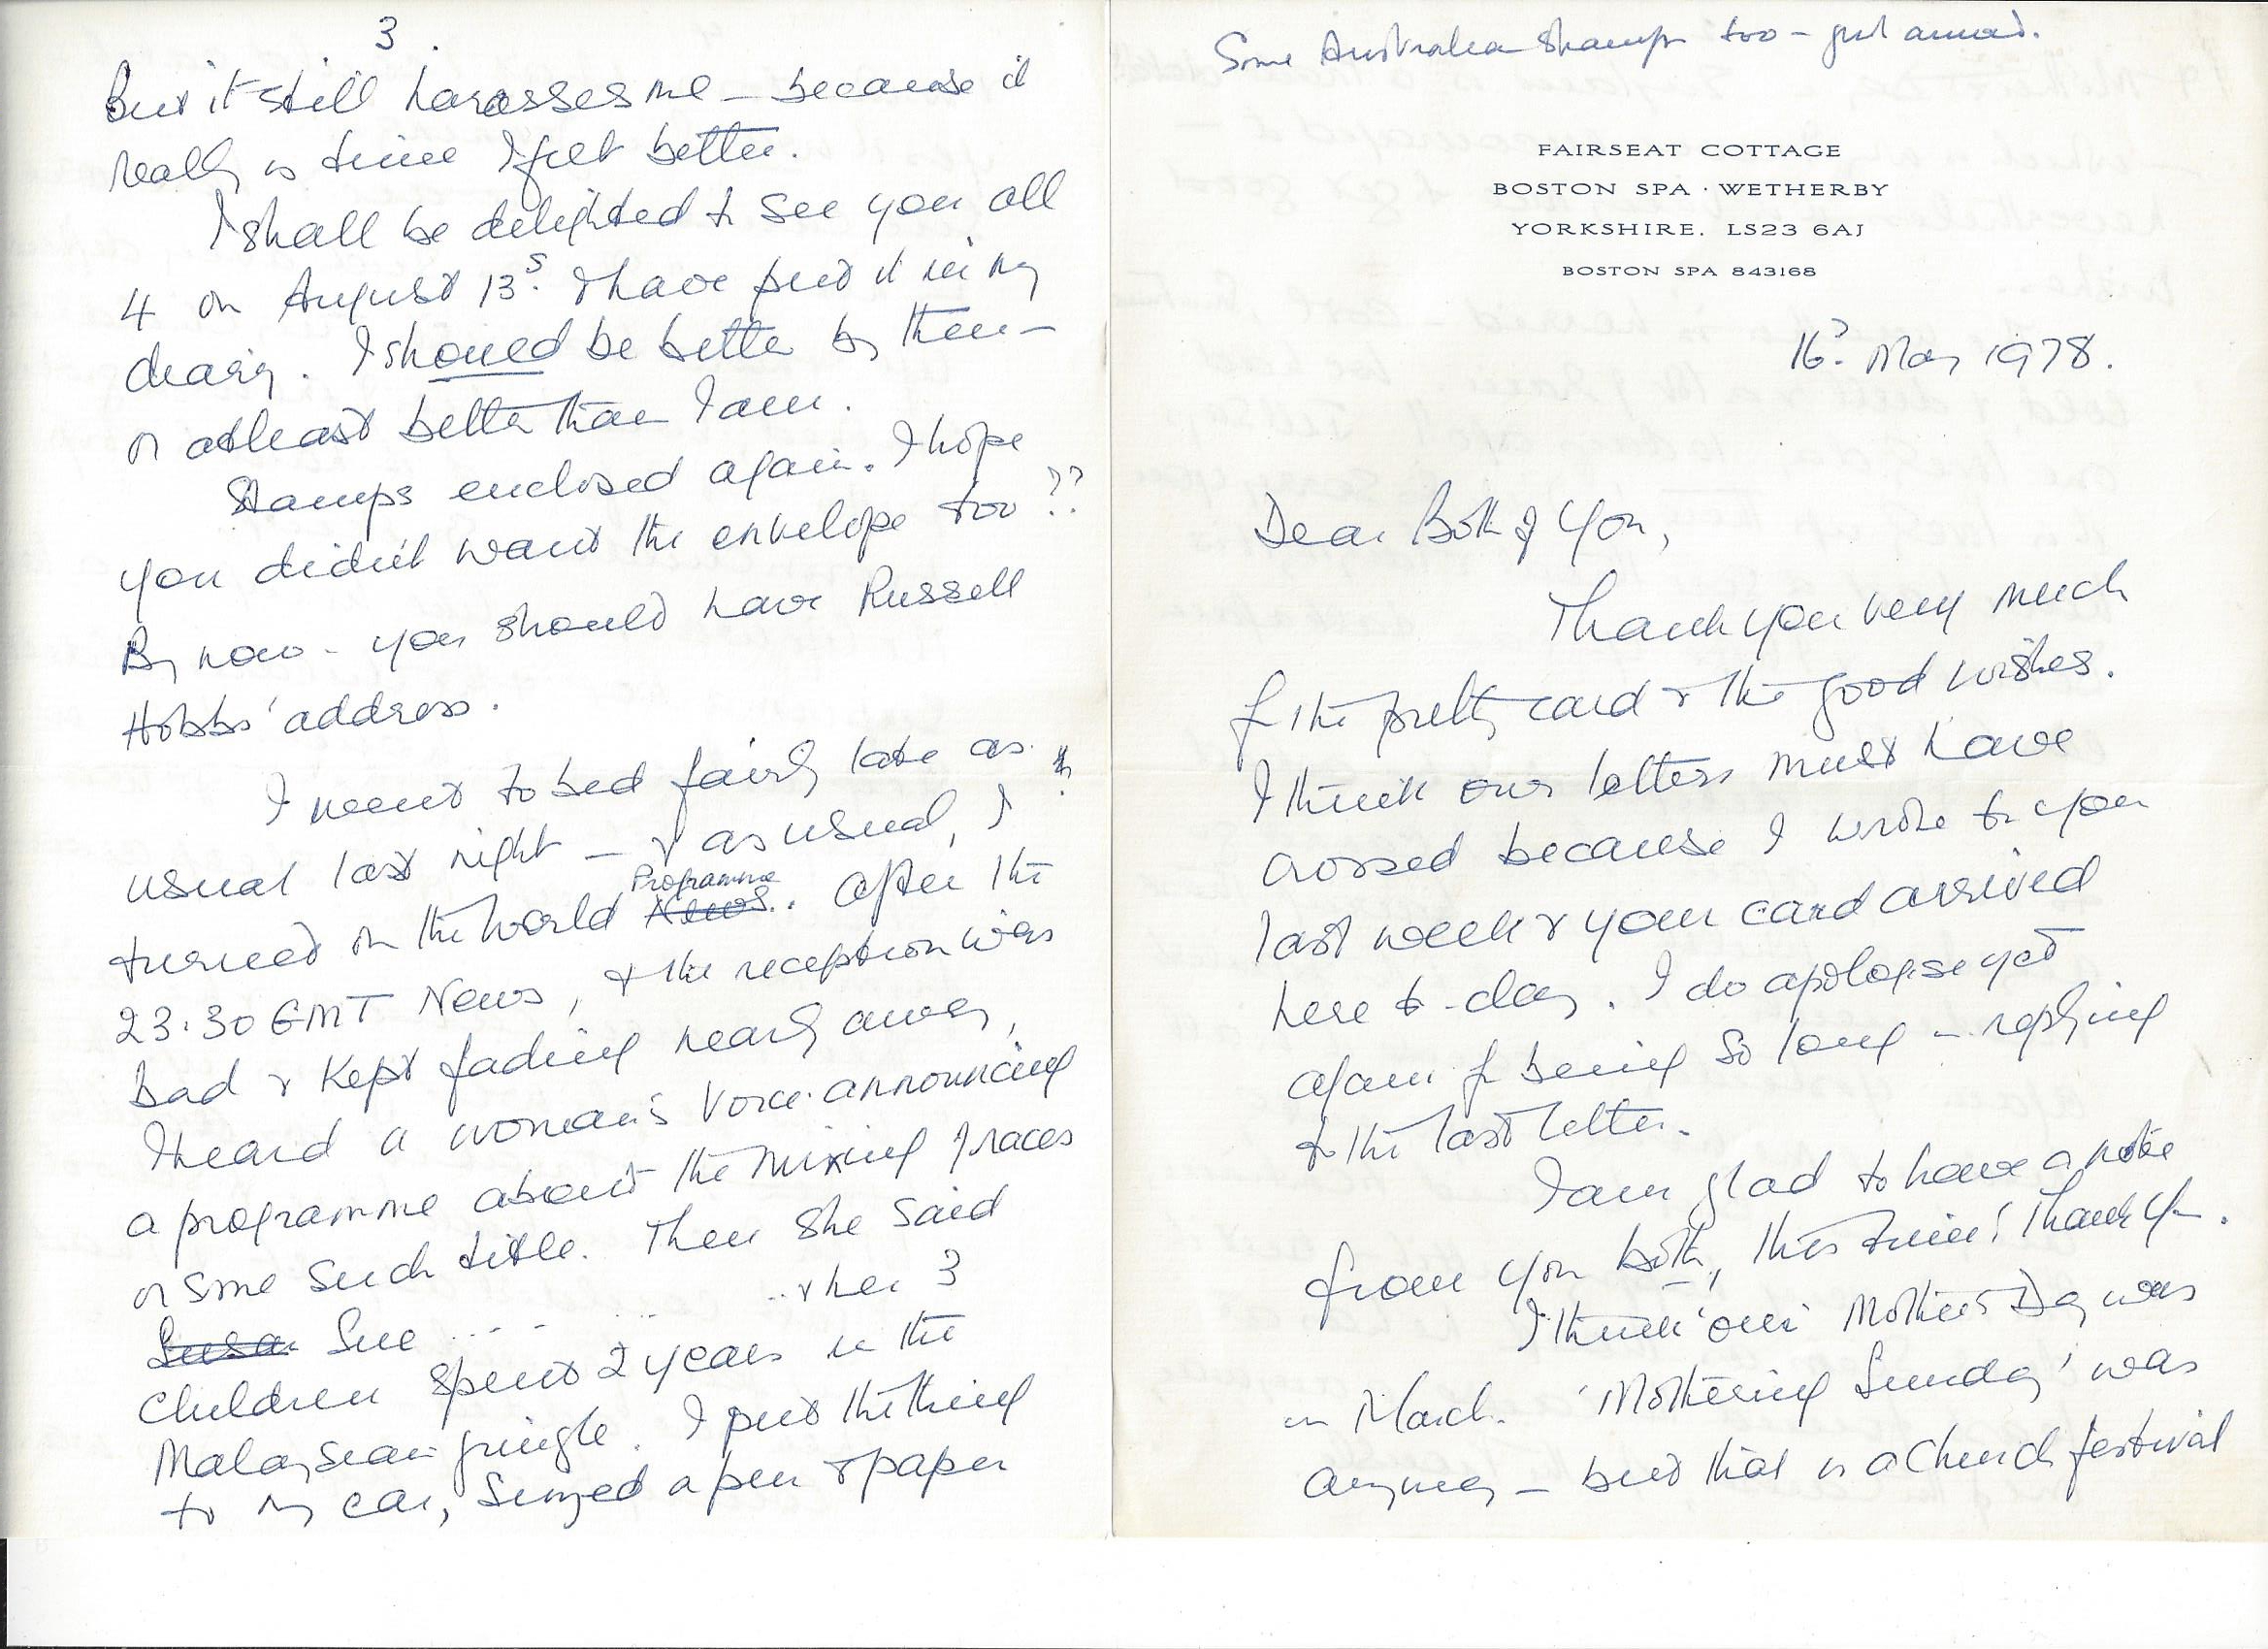 Some Australian Stamps too – just arrived.
FAIRSEAT COTTAGE
BOSTON SPA · WETHERBY
YORKSHIRE. LS23 6AJ
BOSTON SPA 843168
16? May 1978.
Dear Both of You,
Thank you very much
for the pretty card & the good wishes.
I think our letters must have
crossed because I wrote to you
last week & your card arrived
here to-day. I do apologise yet
again for being so long – replying
to the last letter.
I am glad to have a note
from you both, this time! Thank you.
I think 'our' Mother's Day was
in March. 'Mothering Sunday' was
anyway – but that is a Church festival
3.
But it still harasses me – because it
really is time I felt better.
I shall be delighted to see you all
4 on August 13th. & have put it in my
diary. I should be better by then –
or at least better than I am.
Stamps enclosed again. I hope
you didn't want the envelope too??
By now – you should have Russell
Hobbs' address.
I went to bed fairly late as
usual last night – & as usual, I
turned on the World Programme News. after the
23.30 GMT News, & the reception was
bad & kept fading nearly away,
I heard a woman's voice announcing
a programme about the mixing of races
or some such title. Then she said
Susan Sue .... .... ..& her 3
children spent 2 years in the
Malaysian jungle. I put the thing
to my ear, seized a pen & paper